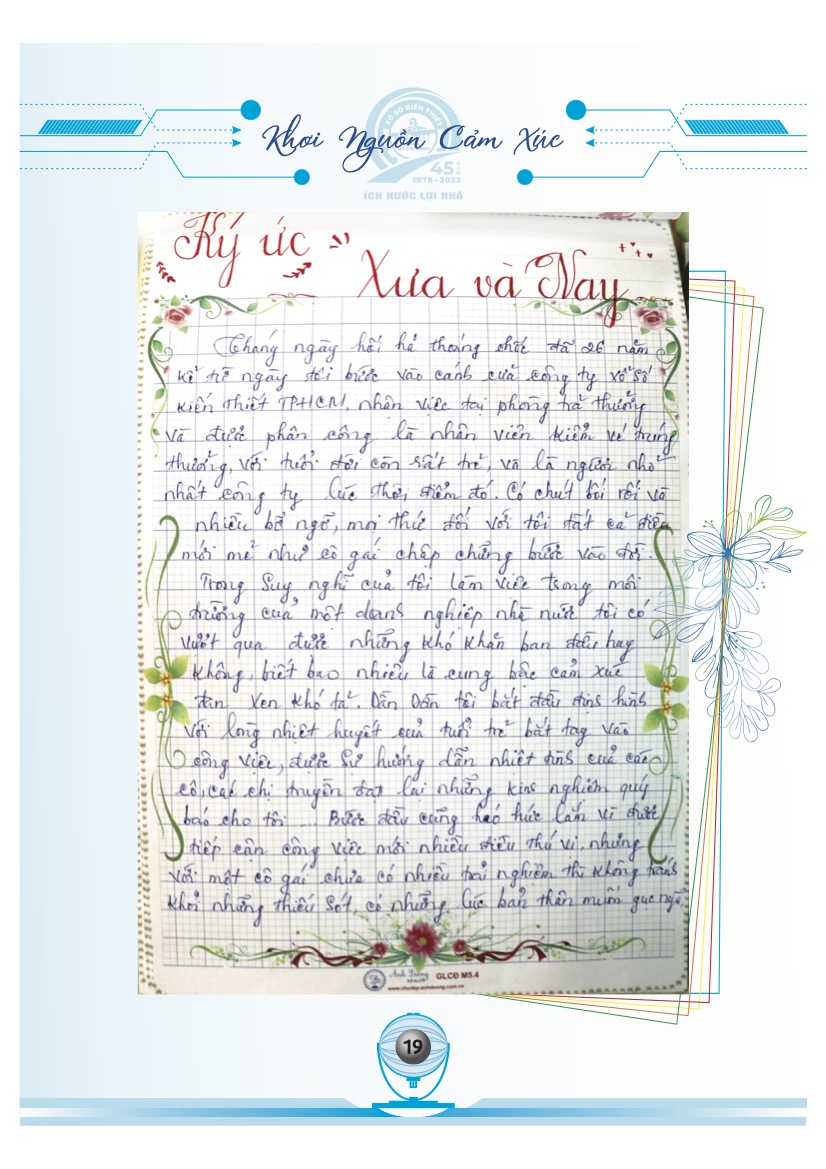 XỔ SỐ KIẾN THIẾT
Khơi Nguồn Cảm Xúc
45 NĂM
1978 - 2023
ÍCH NƯỚC LỢI NHÀ
Ký ức
Xưa và Nay
Tháng ngày hối hả thoáng chốc đã 26 năm
kể từ ngày tôi bước vào cánh cửa công ty xổ số
kiến thiết TPHCM, nhân việc tại phòng trả thưởng
và được phân công là nhân viên kiểm vé trúng
thưởng, với tuổi đời còn rất trẻ, và là người nhỏ
nhất công ty lúc thời điểm đó. Có chút bối rối và
nhiều bỡ ngỡ, mọi thứ đối với tôi tất cả điều
mới mẻ như cô gái chập chững bước vào đời.
Trong suy nghĩ của tôi làm việc trong môi
trường của một doanh nghiệp nhà nước tôi có
vượt qua được những khó khăn ban đầu hay
không, biết bao nhiêu là cung bậc cảm xúc
đan xen khó tả. Dần dần tôi bắt đầu định hình
với lòng nhiệt huyết của tuổi trẻ bắt tay vào
công việc, được sự hướng dẫn nhiệt tình của các
cô, các chị truyền đạt lại những kinh nghiệm quý
báo cho tôi ... Bước đầu cũng háo hức lắm vì được
tiếp cận công việc mới nhiều điều thú vị, nhưng
với một cô gái chưa có nhiều trải nghiệm thì không tránh
khỏi những thiếu sót, có những lúc bản thân muốn gục ngã
Ánh Dương
GLCĐ M5.4
www.chudep-anhduong.com.vn
19